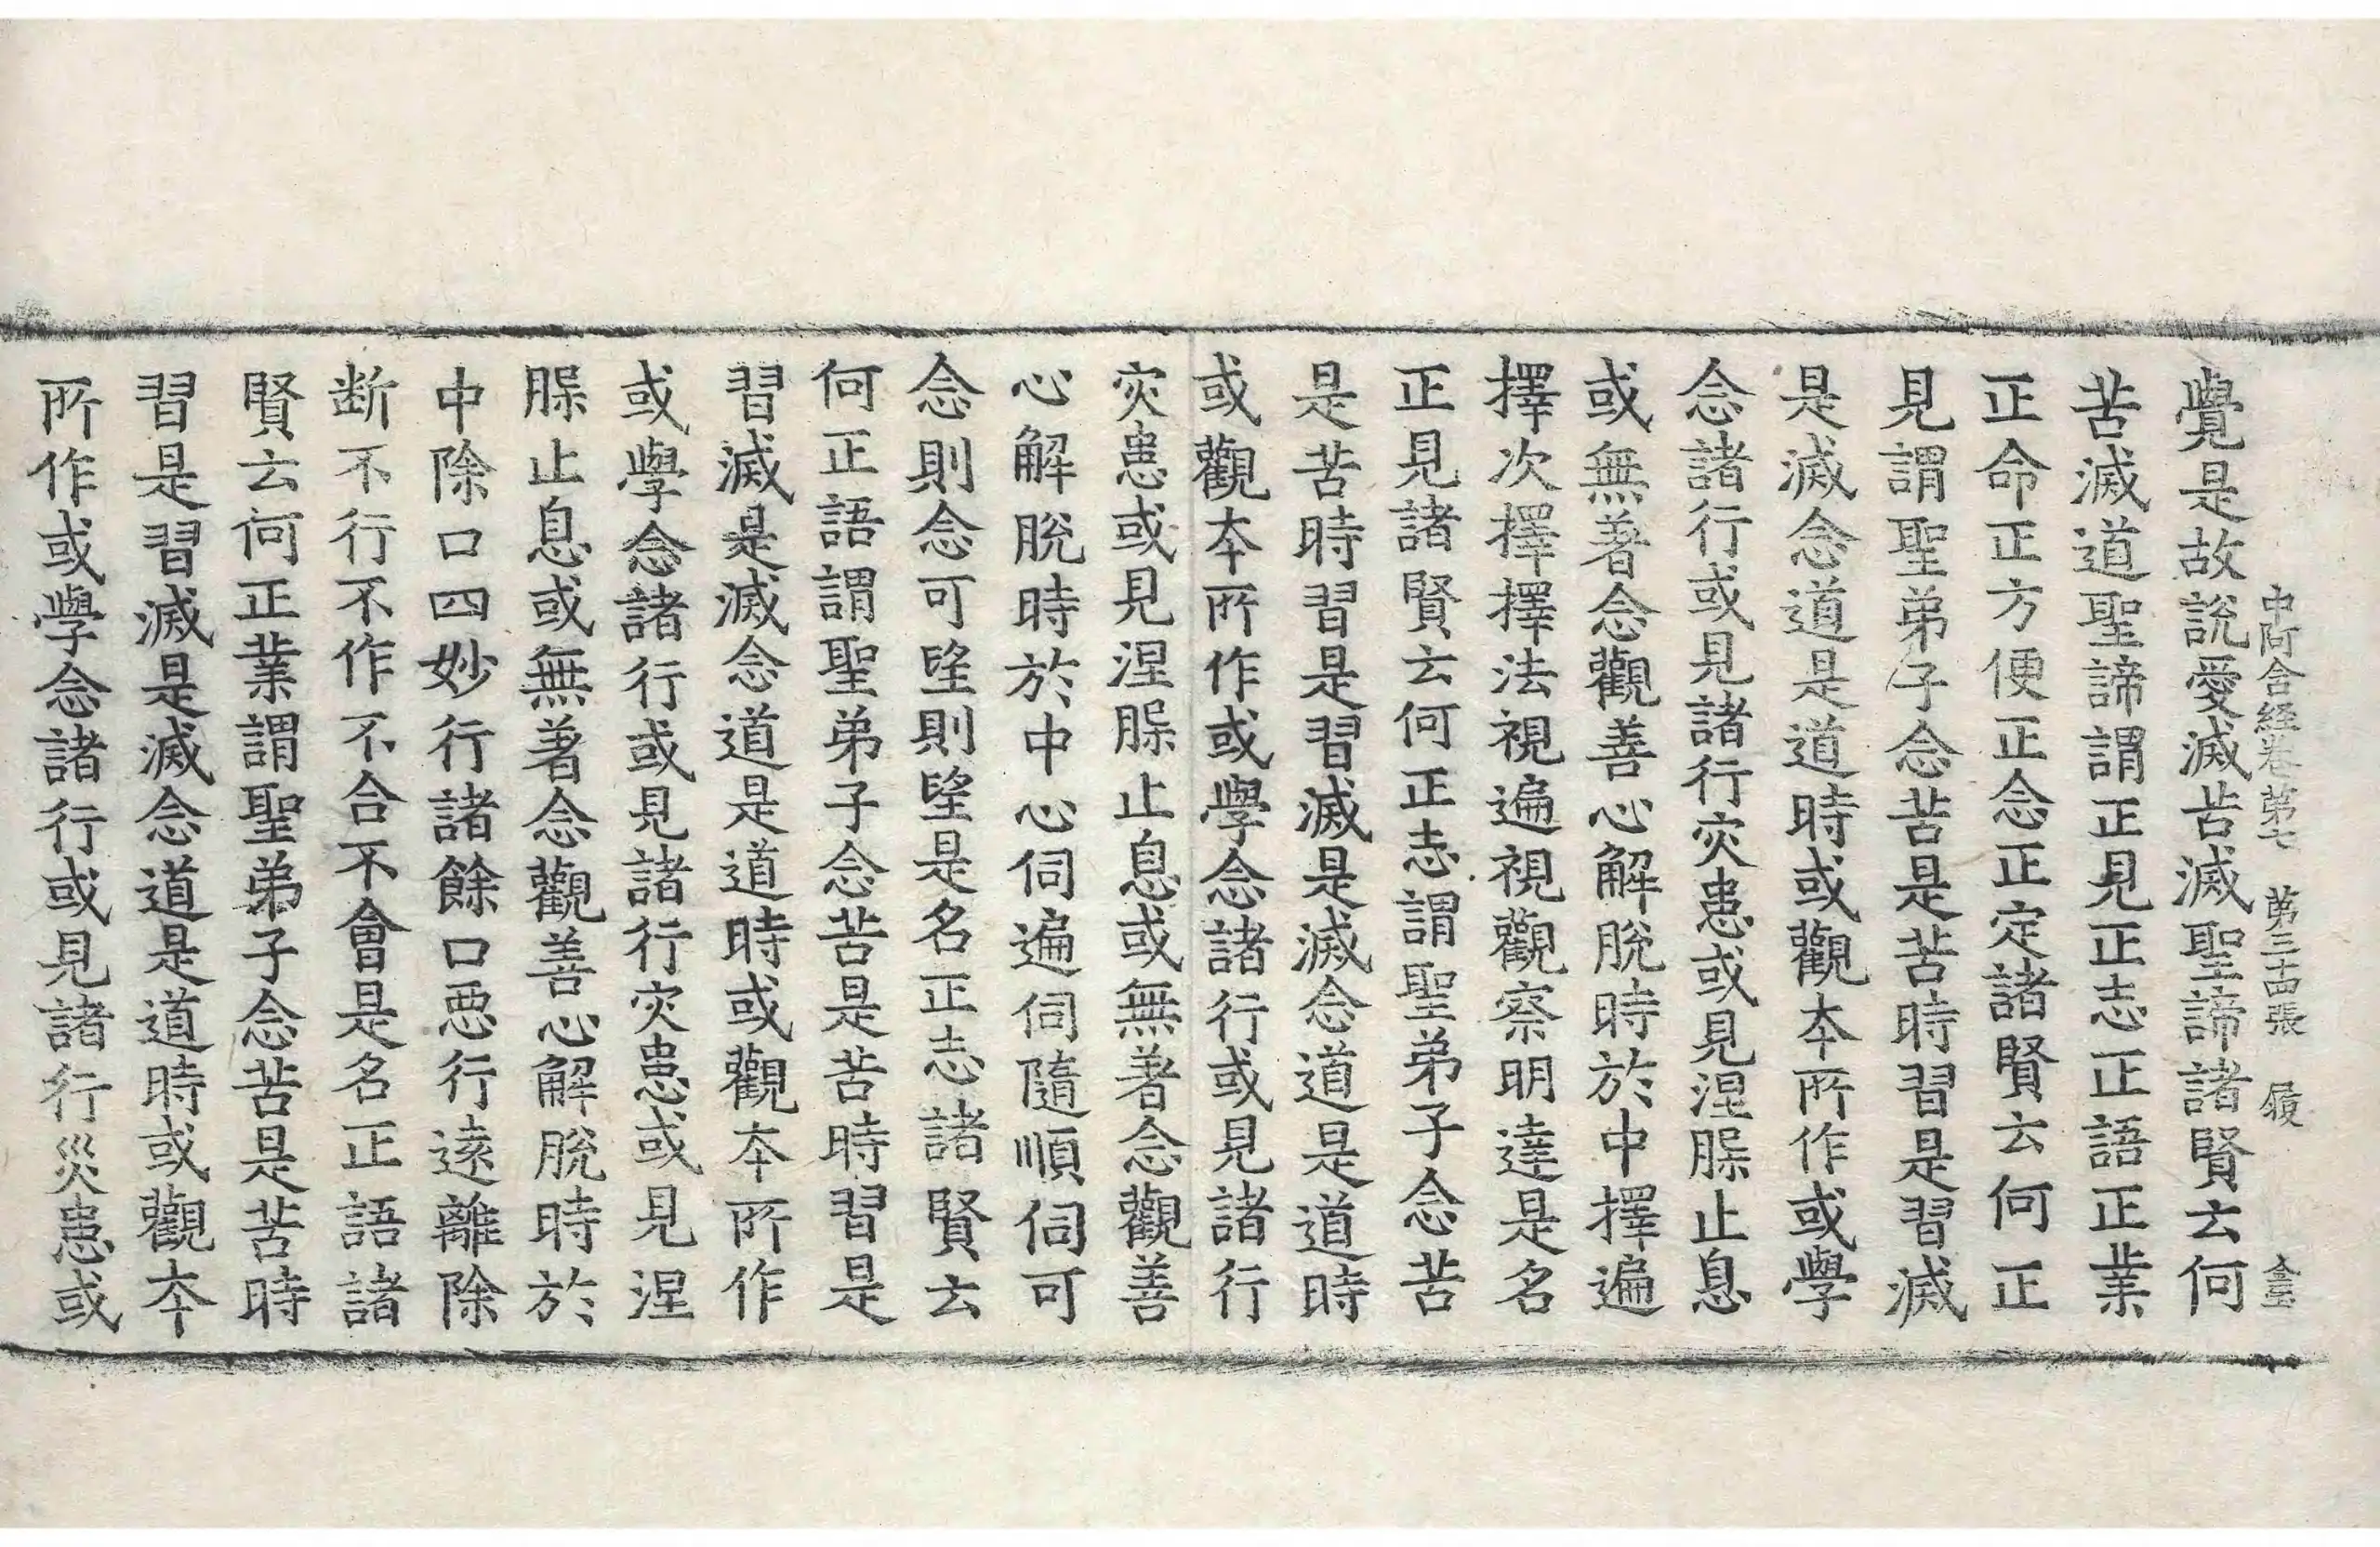 中阿含経巻第七 第三十四張 履
覺是故說愛滅苦滅聖諦諸賢云何
苦滅道聖諦謂正見正志正語正業
正命正方便正念正定諸賢云何正
見謂聖弟子念苦是苦時習是習滅
是滅念道是道時或觀本所作或學
念諸行或見諸行灾患或見涅槃止息
或無著念觀善心解脫時於中擇遍
擇次擇擇法視遍視觀察明達是名
正見諸賢云何正志謂聖弟子念苦
是苦時習是習滅是滅念道是道時
或觀本所作或學念諸行或見諸行
灾患或見涅槃止息或無著念觀善
心解脫時於中心伺遍伺隨順伺可
念則念可望則望是名正志諸賢云
何正語謂聖弟子念苦是苦時習是
習滅是滅念道是道時或觀本所作
或學念諸行或見諸行灾患或見涅
槃止息或無著念觀善心解脫時於
中除口四妙行諸餘口惡行遠離除
断不行不作不合不會是名正語諸
賢云何正業謂聖弟子念苦是苦時
習是習滅是滅念道是道時或觀本
所作或學念諸行或見諸行災患或